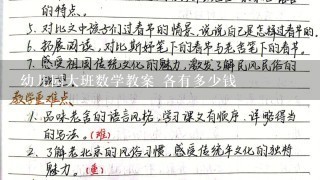 的特点。
5. 对比文中孩子们过春节的情景,说说自己是怎样过春节的。
6. 拓展阅读,对比斯妤笔下的春节与老舍笔下的春节。
7. 感受祖国传统文化的魅力,激发了解民风民俗的
幼儿园大班数学教案 各有多少钱
教学重难点
1. 品味老舍的语言风格,学习课文有顺序、详略得当
的写法。(难)
2. 了解老北京的风俗习惯,感受传统年文化的独特
魅力。(重)